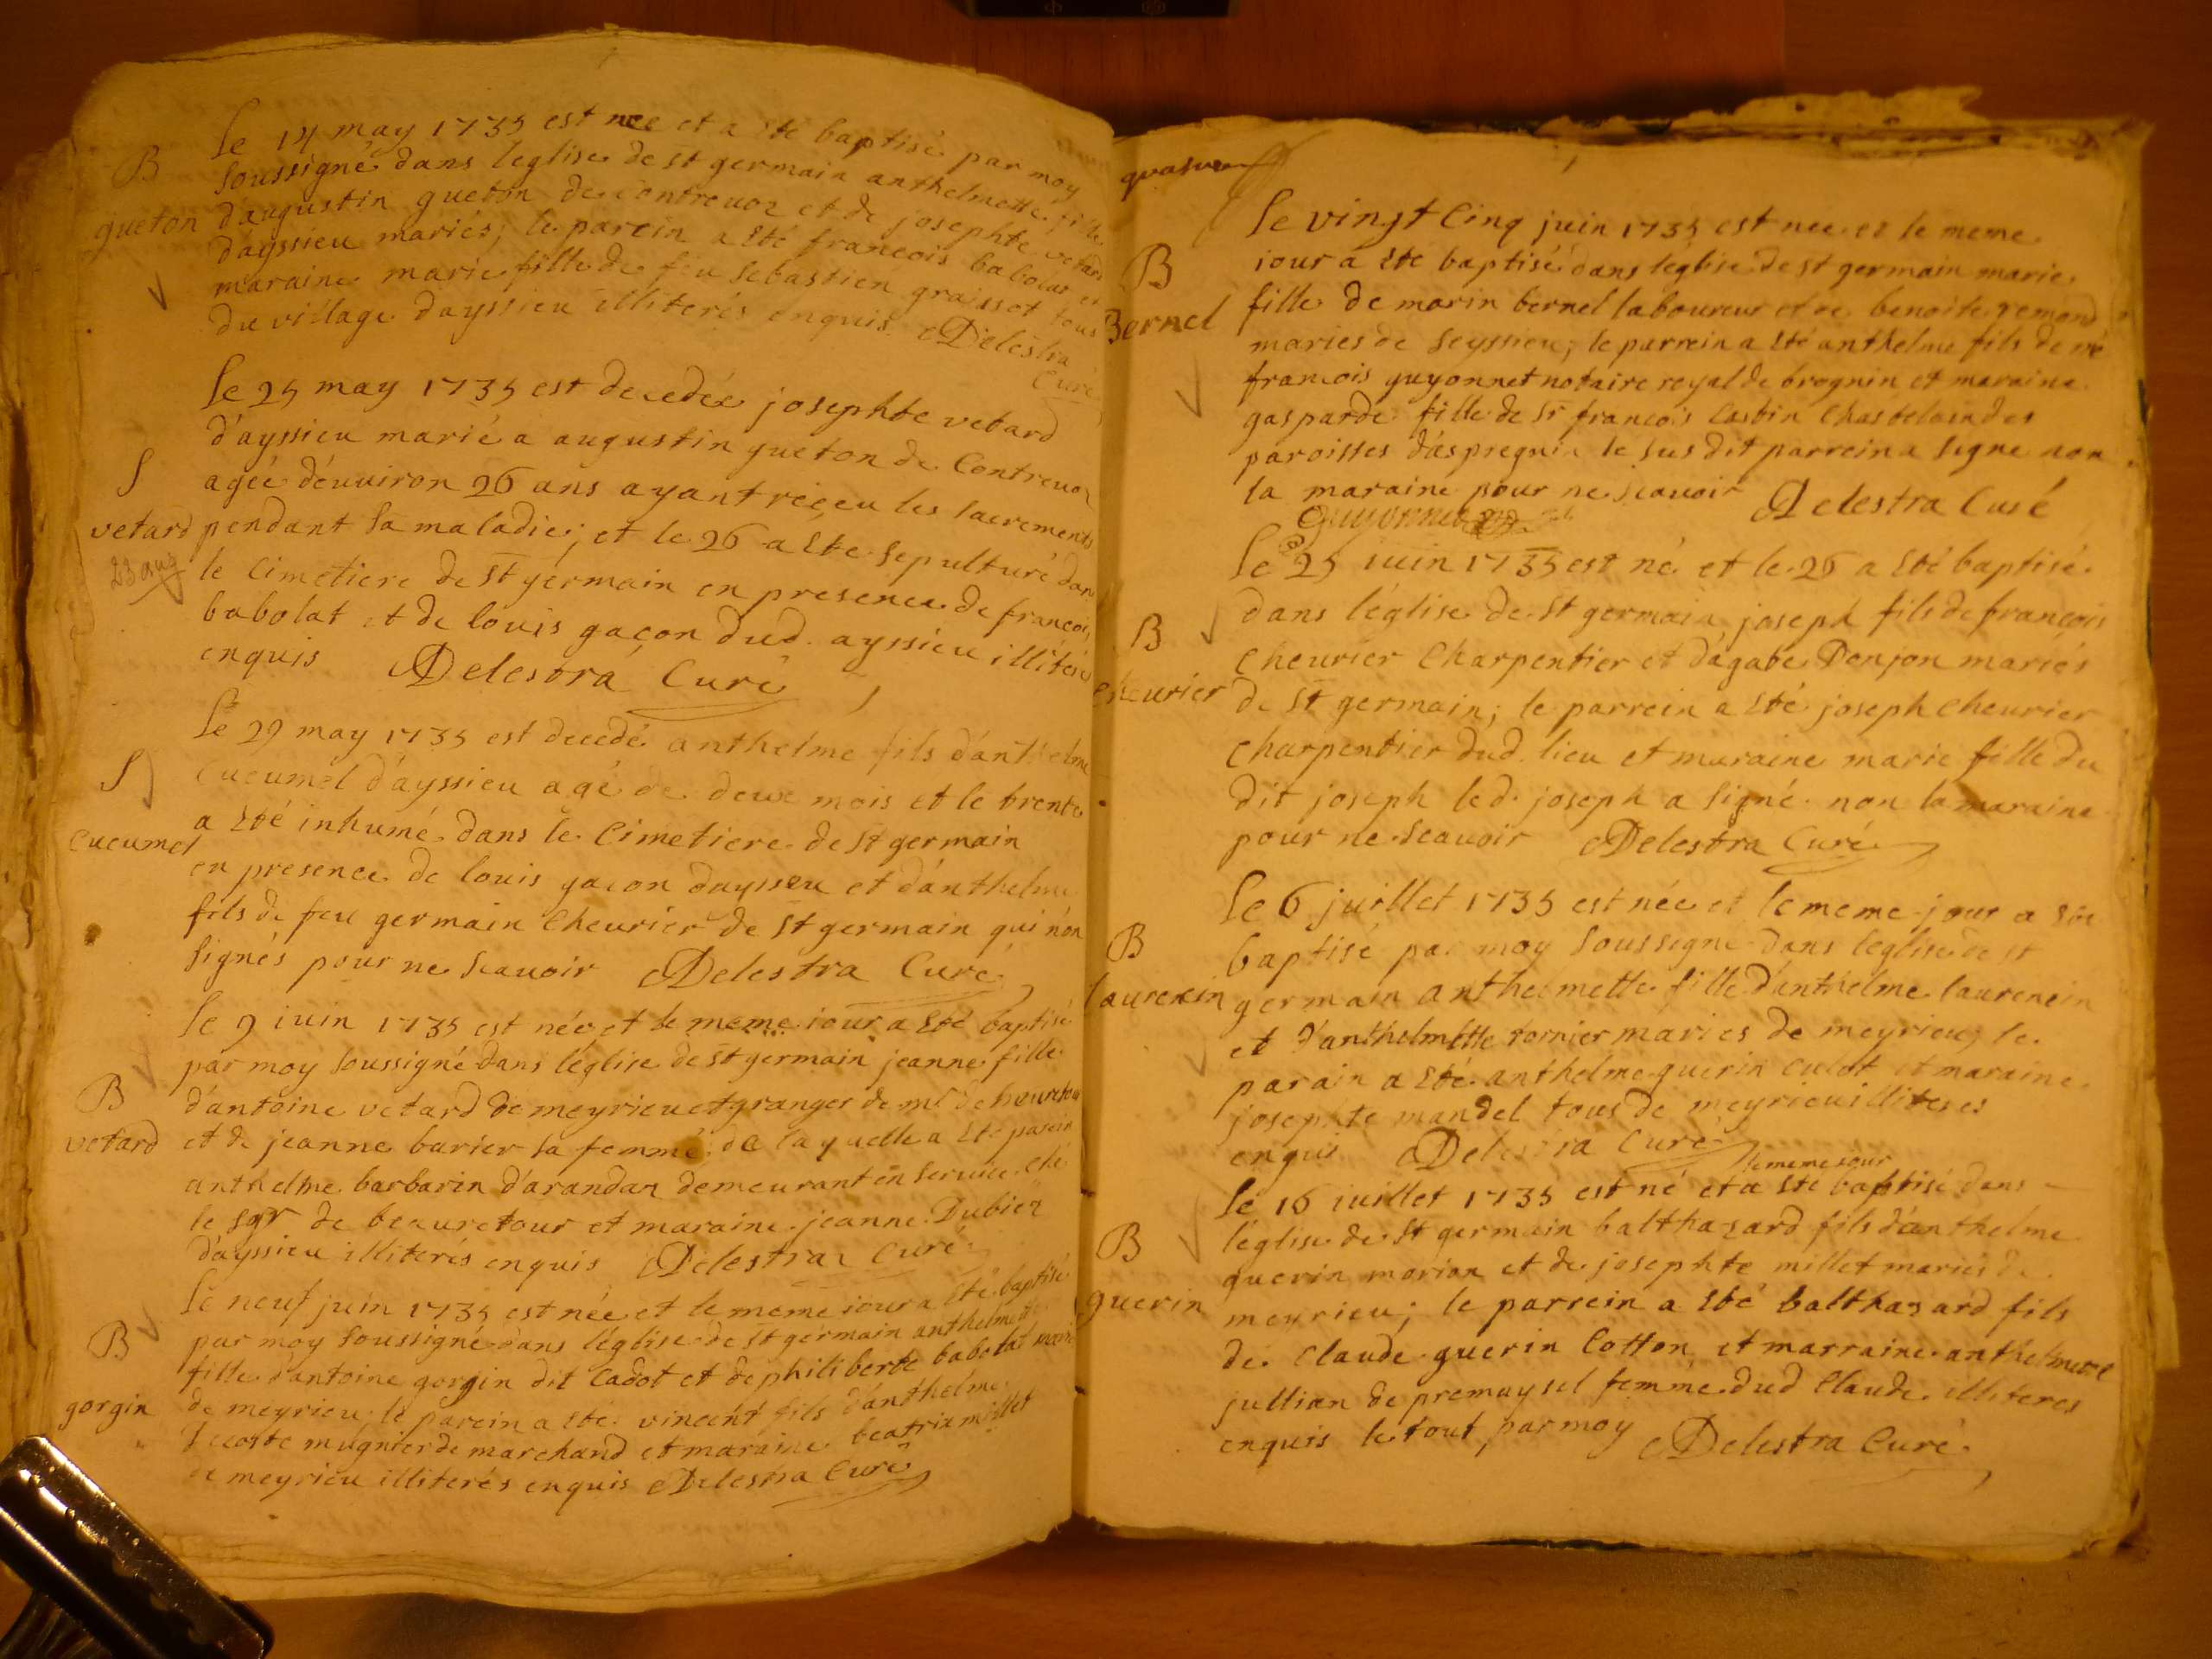 B
gueton
Le 14 may 1735 est nee et a été baptisé par moy
soussigné dans leglise de st germain anthelmette fille
d'augustin gueton de contrevoz et de josephte vetard
d'ayssieu mariés; le parein a été francois babolat et
maraine marie fille de feu sebastien graissot tous
du village d'ayssieu illiterés enquis Delestra
Curé
S
vetard
23 aug
Le 25 may 1735 est decedée josephte vetard
d'ayssieu marié a augustin gueton de Contrevoz
agée d'environ 26 ans ayant receu les sacrements
pendant sa maladie; et le 26 a été sepulturé dans
le Cimetiere de st germain en presence de francois
babolat et de louis gaçon dud. ayssieu illiterés
enquis Delestra Curé
S
cucumel
Le 29 may 1735 est decedé anthelme fils d'anthelme
Cucumel d'ayssieu agé de deux mois et le trente
a été inhumé dans le Cimetiere de st germain
en presence de louis gacon dayssieu et d'anthelme
fils de feu germain Cheurier de st germain qui n'on
signés pour ne scauoir Delestra Curé
B
vetard
Le 9 iuin 1735 est née et le meme iour a été baptisé
par moy soussigné dans l'église de st germain jeanne fille
d'antoine vetard de meyrieu et granger de mr de beuretour
et de jeanne barier sa femme de laquelle a été parein
anthelme barbarin d'arandaz demeurant en service ché
le sgr de beauretour et maraine jeanne Dubiez
d'ayssieu illiterés enquis Delestra Curé
B
gorgin
Le neuf juin 1735 est née et le meme iour a été baptisé
par moy soussigné dans l'église de st germain anthelmette
fille d'antoine gorgin dit Cadot et de philiberte babolat mariés
de meyrieu; le parein a été vincent fils d'anthelme
Decoste mugnier de marchand et maraine beatrix millet
de meyrieu illiterés enquis Delestra Curé
B
Bernel
Le vingt Cinq juin 1735 est nee et le meme
iour a été baptisé dans l'église de st germain marie
fille de marin bernel laboureur et de benoite remond
mariés de seyssieu; le parrein a été anthelme fils de me
francois guyonnet notaire royal de brognin et maraine
gasparde fille de sr francois Castin Chastelain des
paroisses d'aspregnin le susdit parrein a signé non
la maraine pour ne scauoir Delestra Curé
Guyonnet
B
cheurier
Le 25 iuin 1735 est né et le 26 a été baptisé
dans l'église de st germain joseph fils de françois
Cheurier Charpentier et d'agate Donjon mariés
de st germain; le parrein a été joseph Cheurier
Charpentier dud. lieu et maraine marie fille du
dit joseph led. joseph a signé non la maraine
pour ne scauoir Delestra Curé
B
laurencin
Le 6 juillet 1735 est née et le meme jour a été
baptisé par moy soussigné dans leglise de st
germain anthelmette fille d'anthelme laurencin
et d'anthelmette tornier mariés de meyrieu; le
parain a été anthelme guerin culot et maraine
josephte mandel tous de meyrieu illiteres
enquis Delestra Curé
B
guerin
le meme iour
Le 16 iuillet 1735 est né et a été baptisé dans
l'église de st germain balthazard fils d'anthelme
guerin morion et de josephte millet mariés de
meyrieu; le parrein a été balthazard fils
de Claude guerin Cotton et marraine anthelmette
jullian de premaysel femme dud Claude illiteres
enquis le tout par moy Delestra Curé